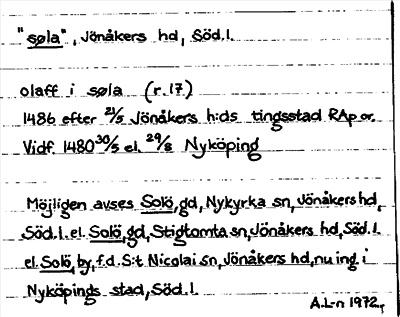 "søla", Jönåkers hd, Söd.l.
olaff i søla (r.17.)
1486 efter 21/5 Jönåkers h:ds tingsstad RAp or.
Vidf. 1480 30/5 el. 29/8 Nyköping
Möjligen avses Solö, gd, Nykyrka sn, Jönåkers hd,
Söd.l. el. Solö, gd, Stigtomta sn, Jönåkers hd, Söd.l.
el. Solö, by, f.d. S:t Nicolai sn, Jönåkers hd, nu ing. i
Nyköpings stad, Söd.l.
A.L-n 1972.